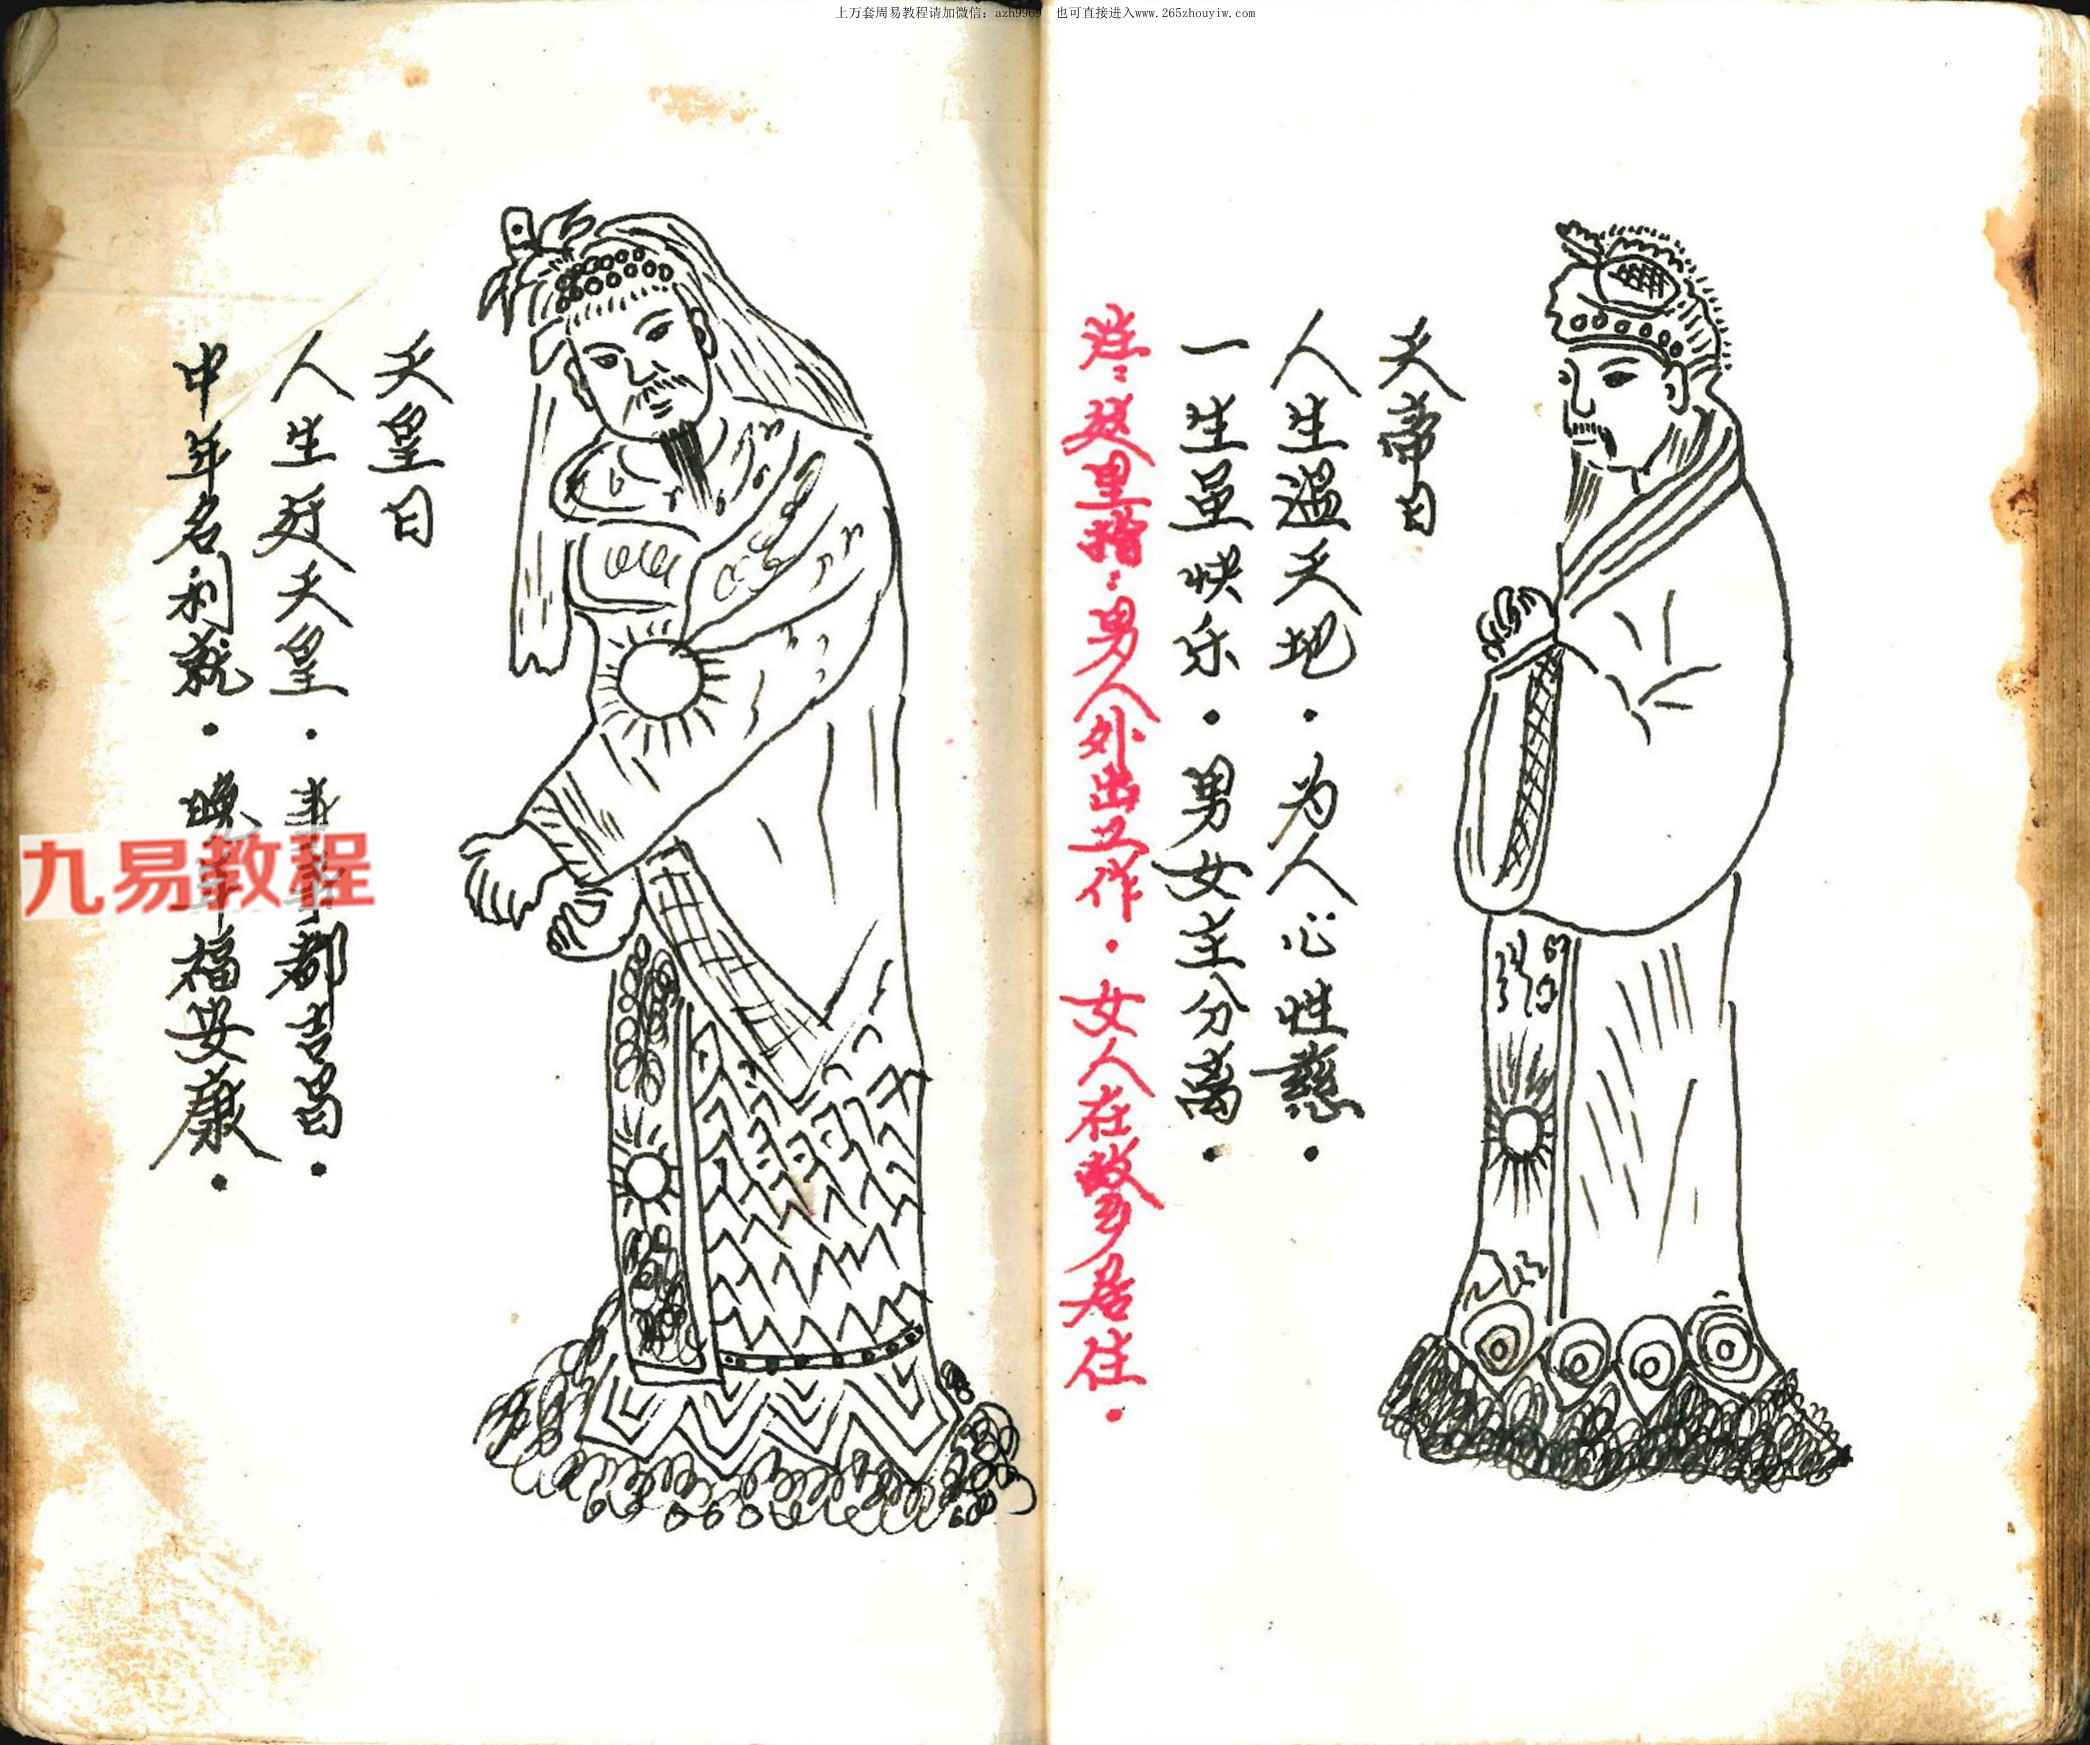 上万套周易教程请加微信: azh9969 也可直接进入www.265zhouyiw.com
天帝日
人生温天地．为人心性慈．
一生虽快乐．男女主分离．
注:这里指:男人外出工作．女人在
居住．
天皇日
人生 天皇．事 都吉昌．
中年名利就．晚年福安康．
九易教程